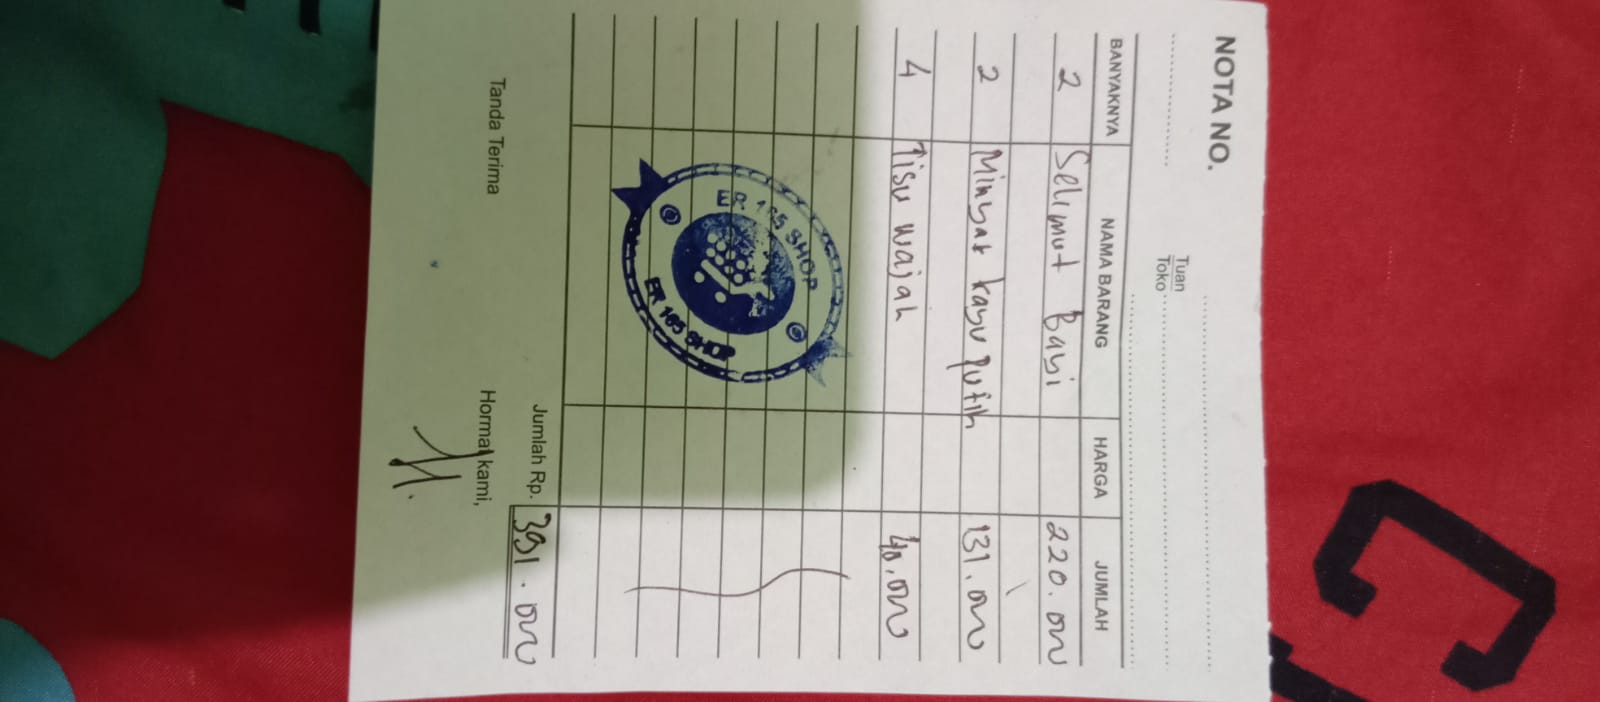 NOTA NO.
Tuan
Toko
BANYAKNYA NAMA BARANG HARGA JUMLAH
2 Selimut Bayi 220.000
2 Minyak kayu putih 131.000
4 Tisu wajah 40.000
ER 165 SHOP
ER 165 SHOP
Jumlah Rp. 391.000
Tanda Terima Hormat kami,